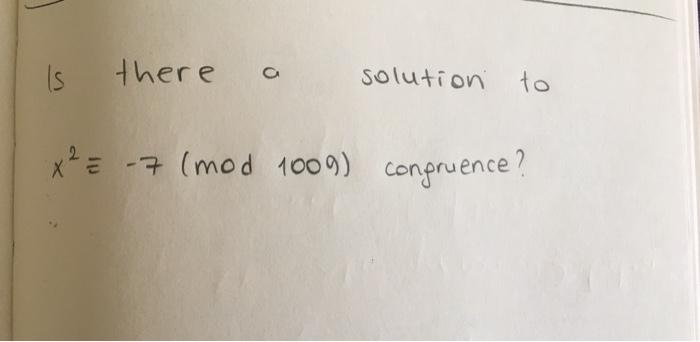 Is there a solution to
x² ≡ -7 (mod 1009) congruence?